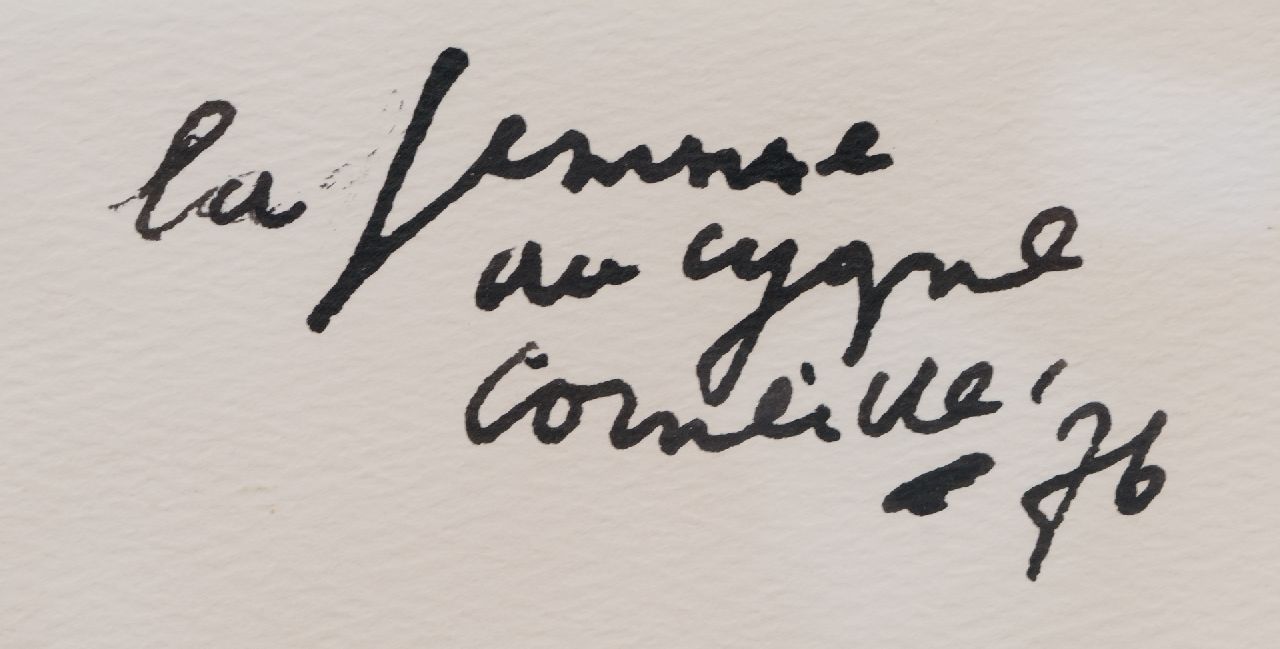 la femme
au cygne
Corneille '76